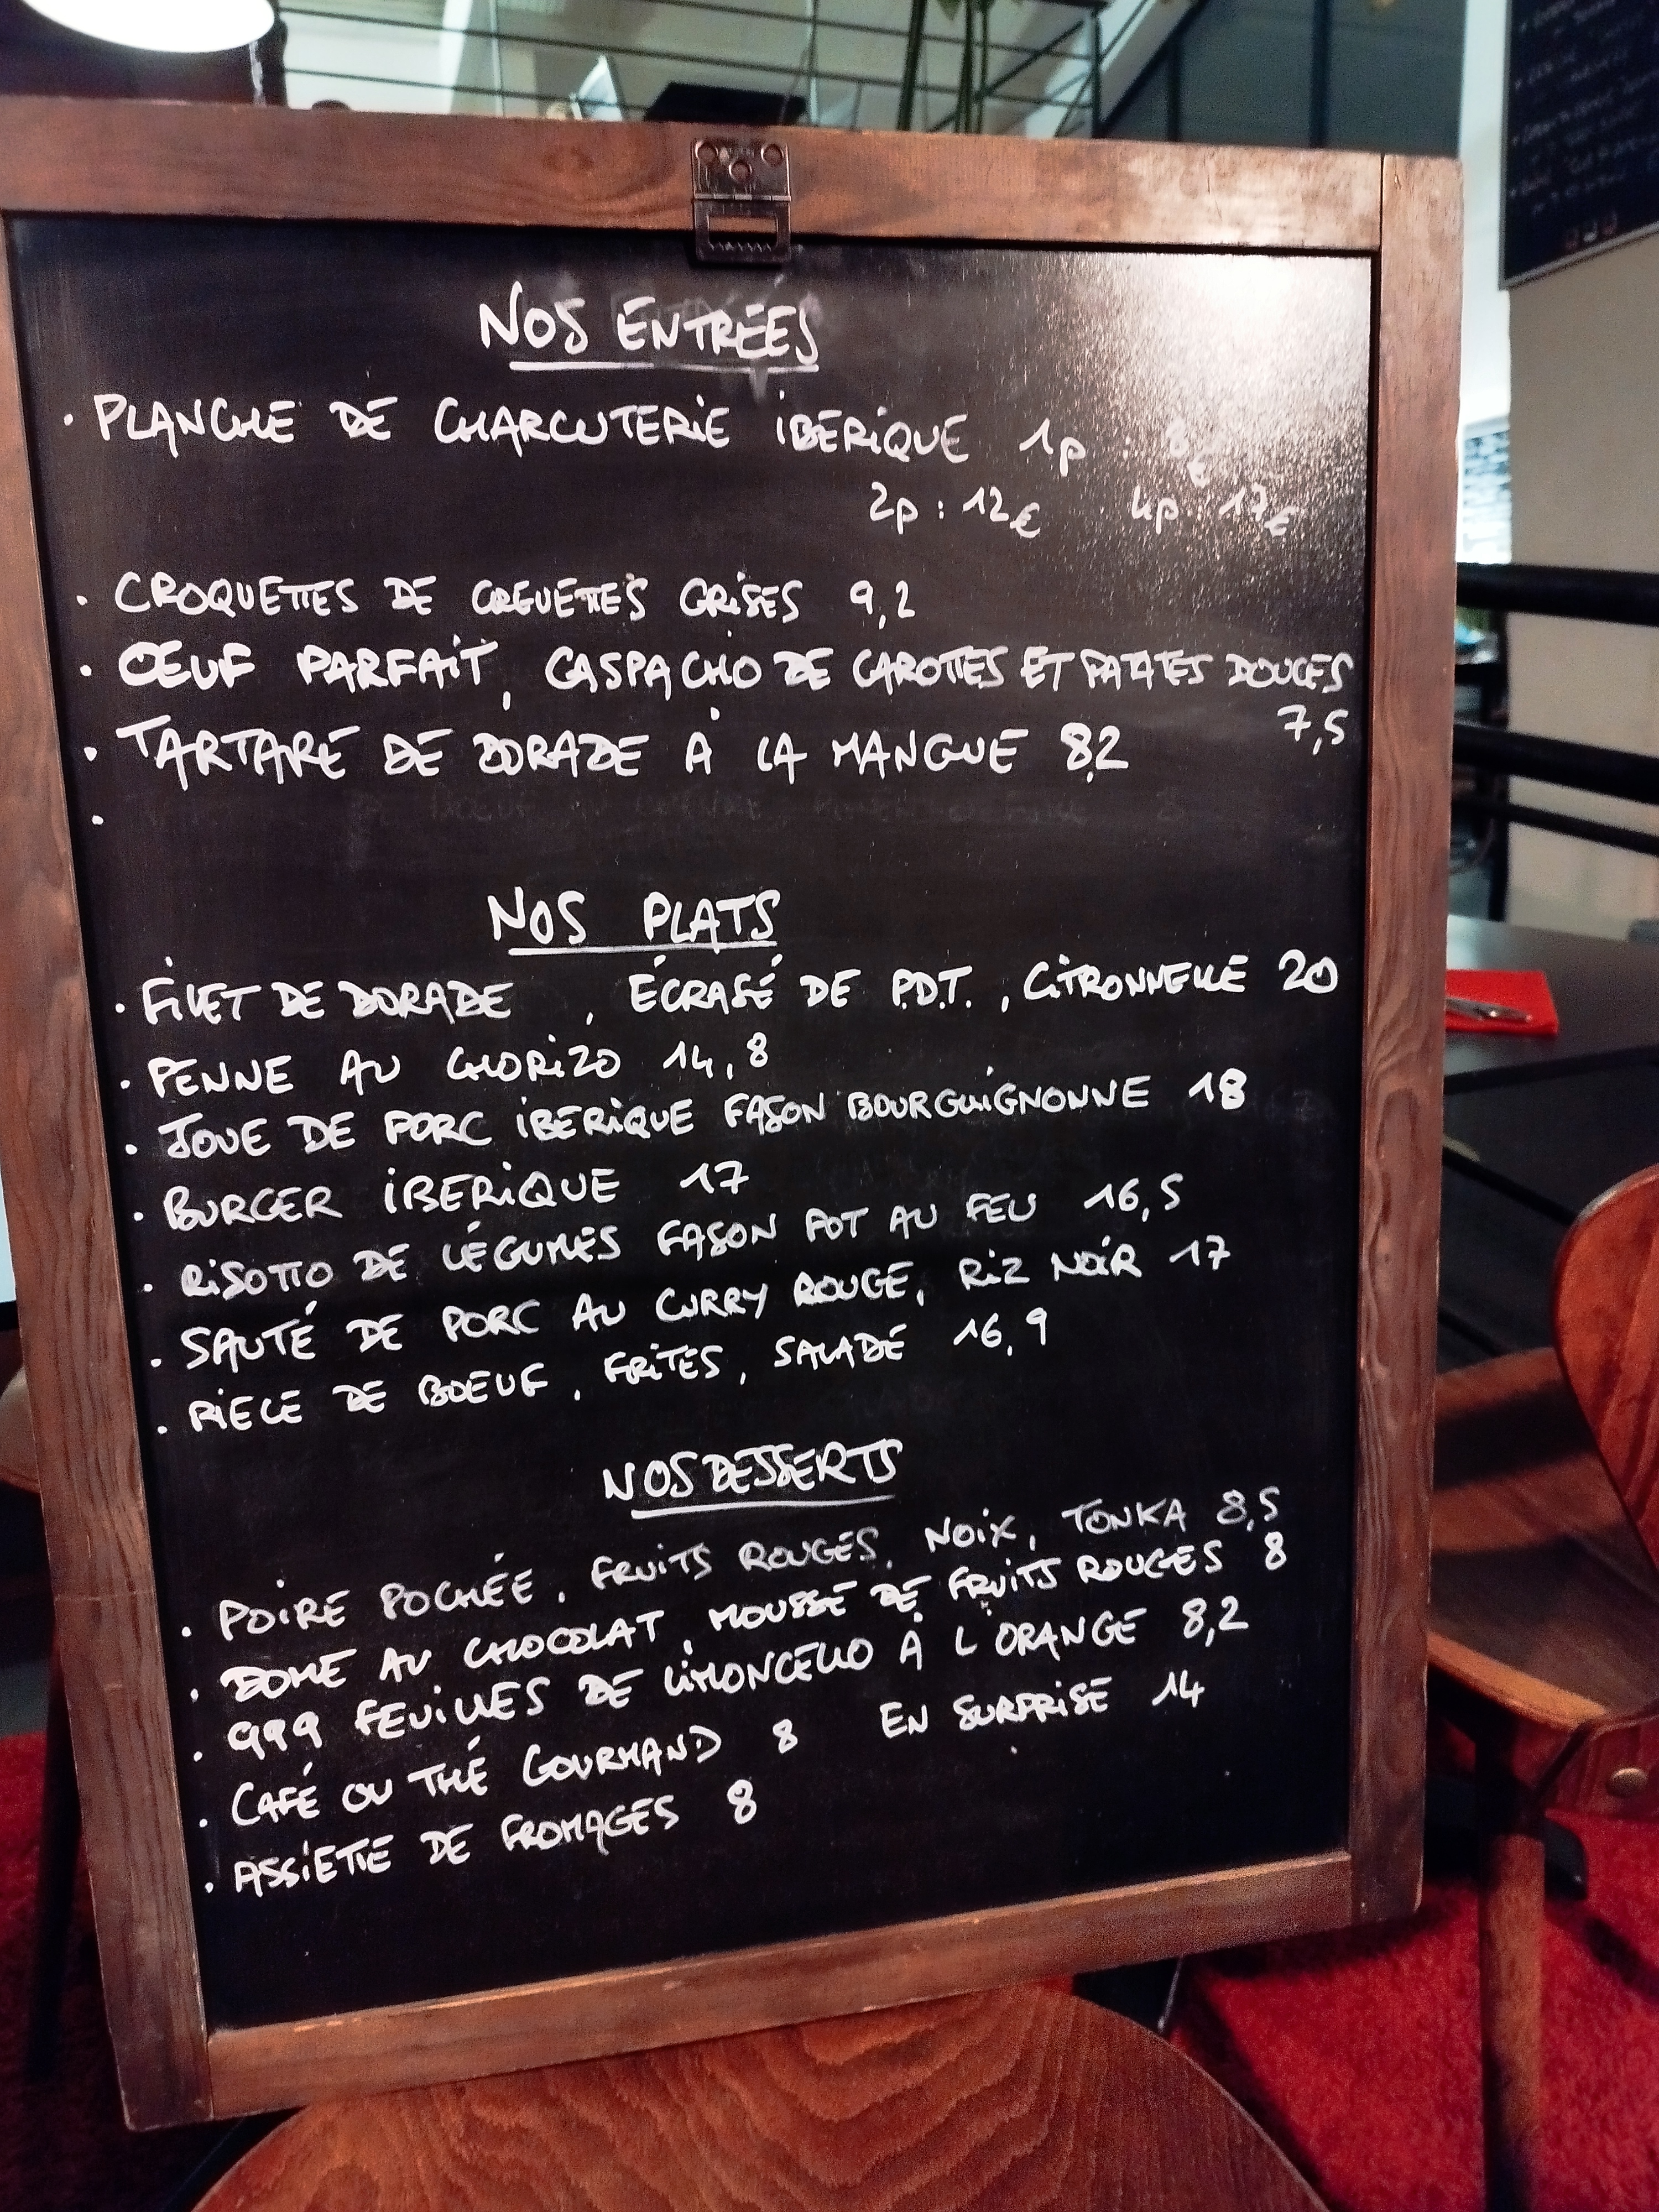 NOS ENTRÉES
· PLANCHE DE CHARCUTERIE IBERIQUE 1p : 8€
2p : 12€ 4p : 17€
· CROQUETTES DE CREVETTES GRISES 9,2
· OEUF PARFAIT, GASPACHO DE CAROTTES ET PATATES DOUCES
7,5
· TARTARE DE DORADE À LA MANGUE 8,2
·
NOS PLATS
· FILET DE DORADE , ÉCRASÉ DE P.D.T. , CITRONNELLE 20
· PENNE AU CHORIZO 14,8
· JOUE DE PORC IBERIQUE FASON BOURGUIGNONNE 18
· BURGER IBERIQUE 17
· RISOTTO DE LÉGUMES FASON POT AU FEU 16,5
· SAUTÉ DE PORC AU CURRY ROUGE, RIZ NOIR 17
· PIECE DE BOEUF, FRITES, SALADE 16,9
NOS DESSERTS
· POIRE POCHÉE, FRUITS ROUGES, NOIX, TONKA 8,5
· DOME AU CHOCOLAT, MOUSSE DE FRUITS ROUGES 8
· 999 FEUILLES DE LIMONCELLO À L'ORANGE 8,2
· CAFÉ OU THÉ GOURMAND 8 EN SURPRISE 14
· ASSIETTE DE FROMAGES 8